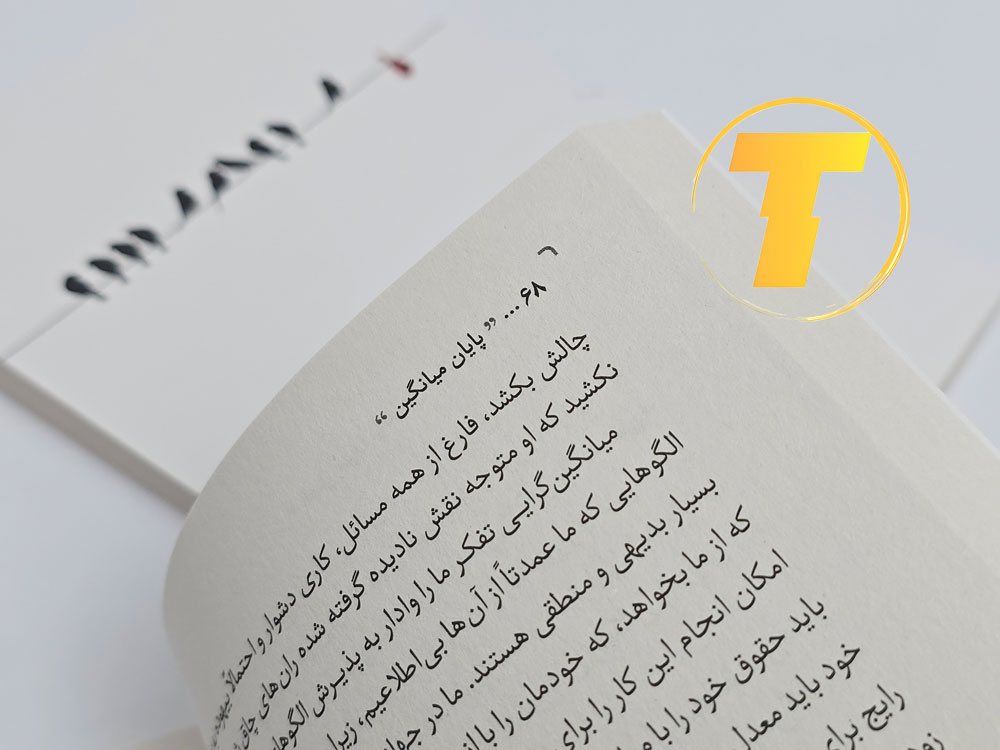 ۶۸ ... ” پایان میانگین “
چالش بکشد، فارغ از همه مسائل، کاری دشوار و احتمالاً بیهوده
نکشید که او متوجه نقش نادیده گرفته شده ران‌های چاق
میانگین‌گرایی تفکر ما را وادار به پذیرش الگوها
الگوهایی که ما عمدتاً از آن‌ها بی‌اطلاعیم، زیرا
بسیار بدیهی و منطقی هستند. ما در
که از ما بخواهد، که خودمان را با
امکان انجام این کار را برای
باید حقوق خود را با
خود باید معدل
رایج برای
T